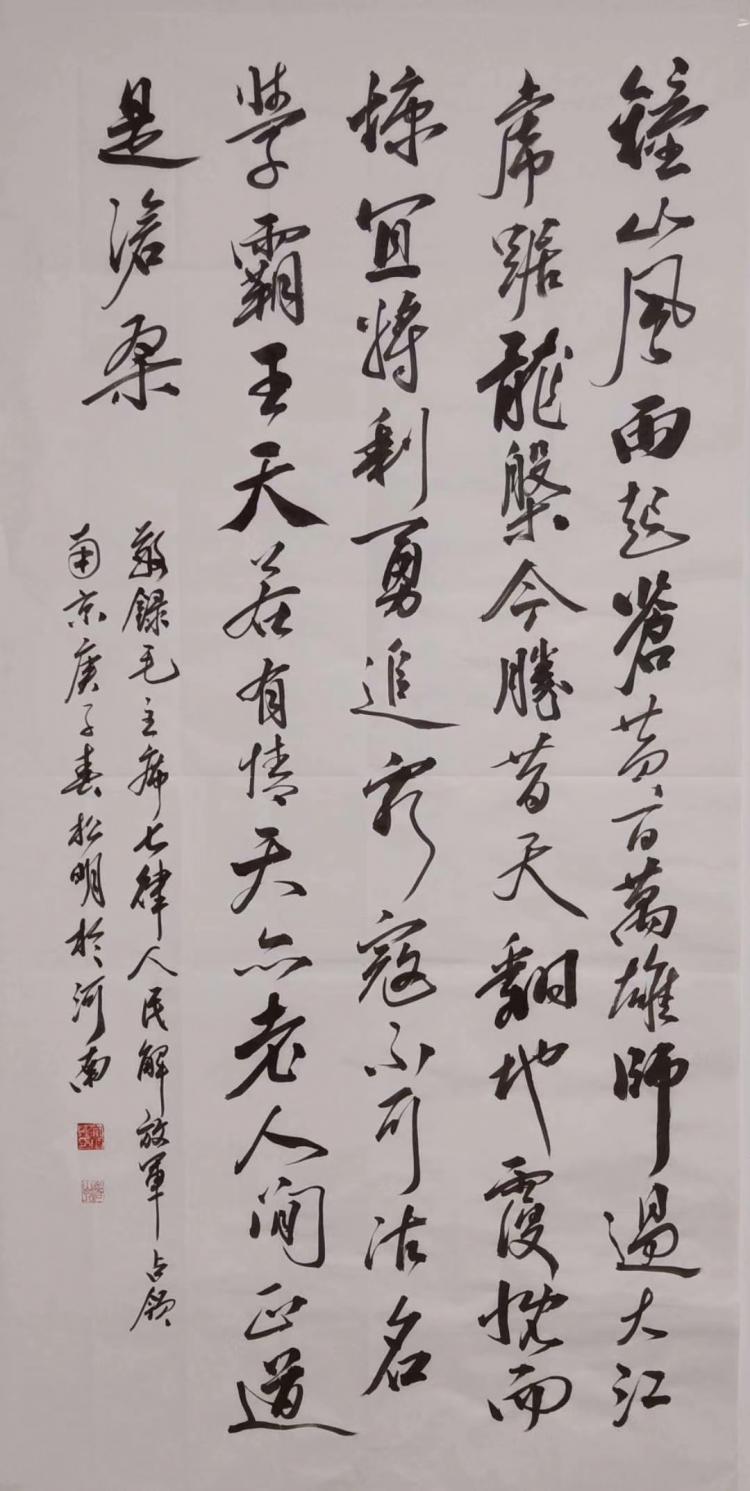 鐘山風雨起蒼黄百萬雄師過大江
虎踞龍盤今勝昔天翻地覆慨而
慷宜將剩勇追窮寇不可沽名
學霸王天若有情天亦老人間正道
是滄桑
敬録毛主席七律人民解放軍占領
南京庚子春松明於河南